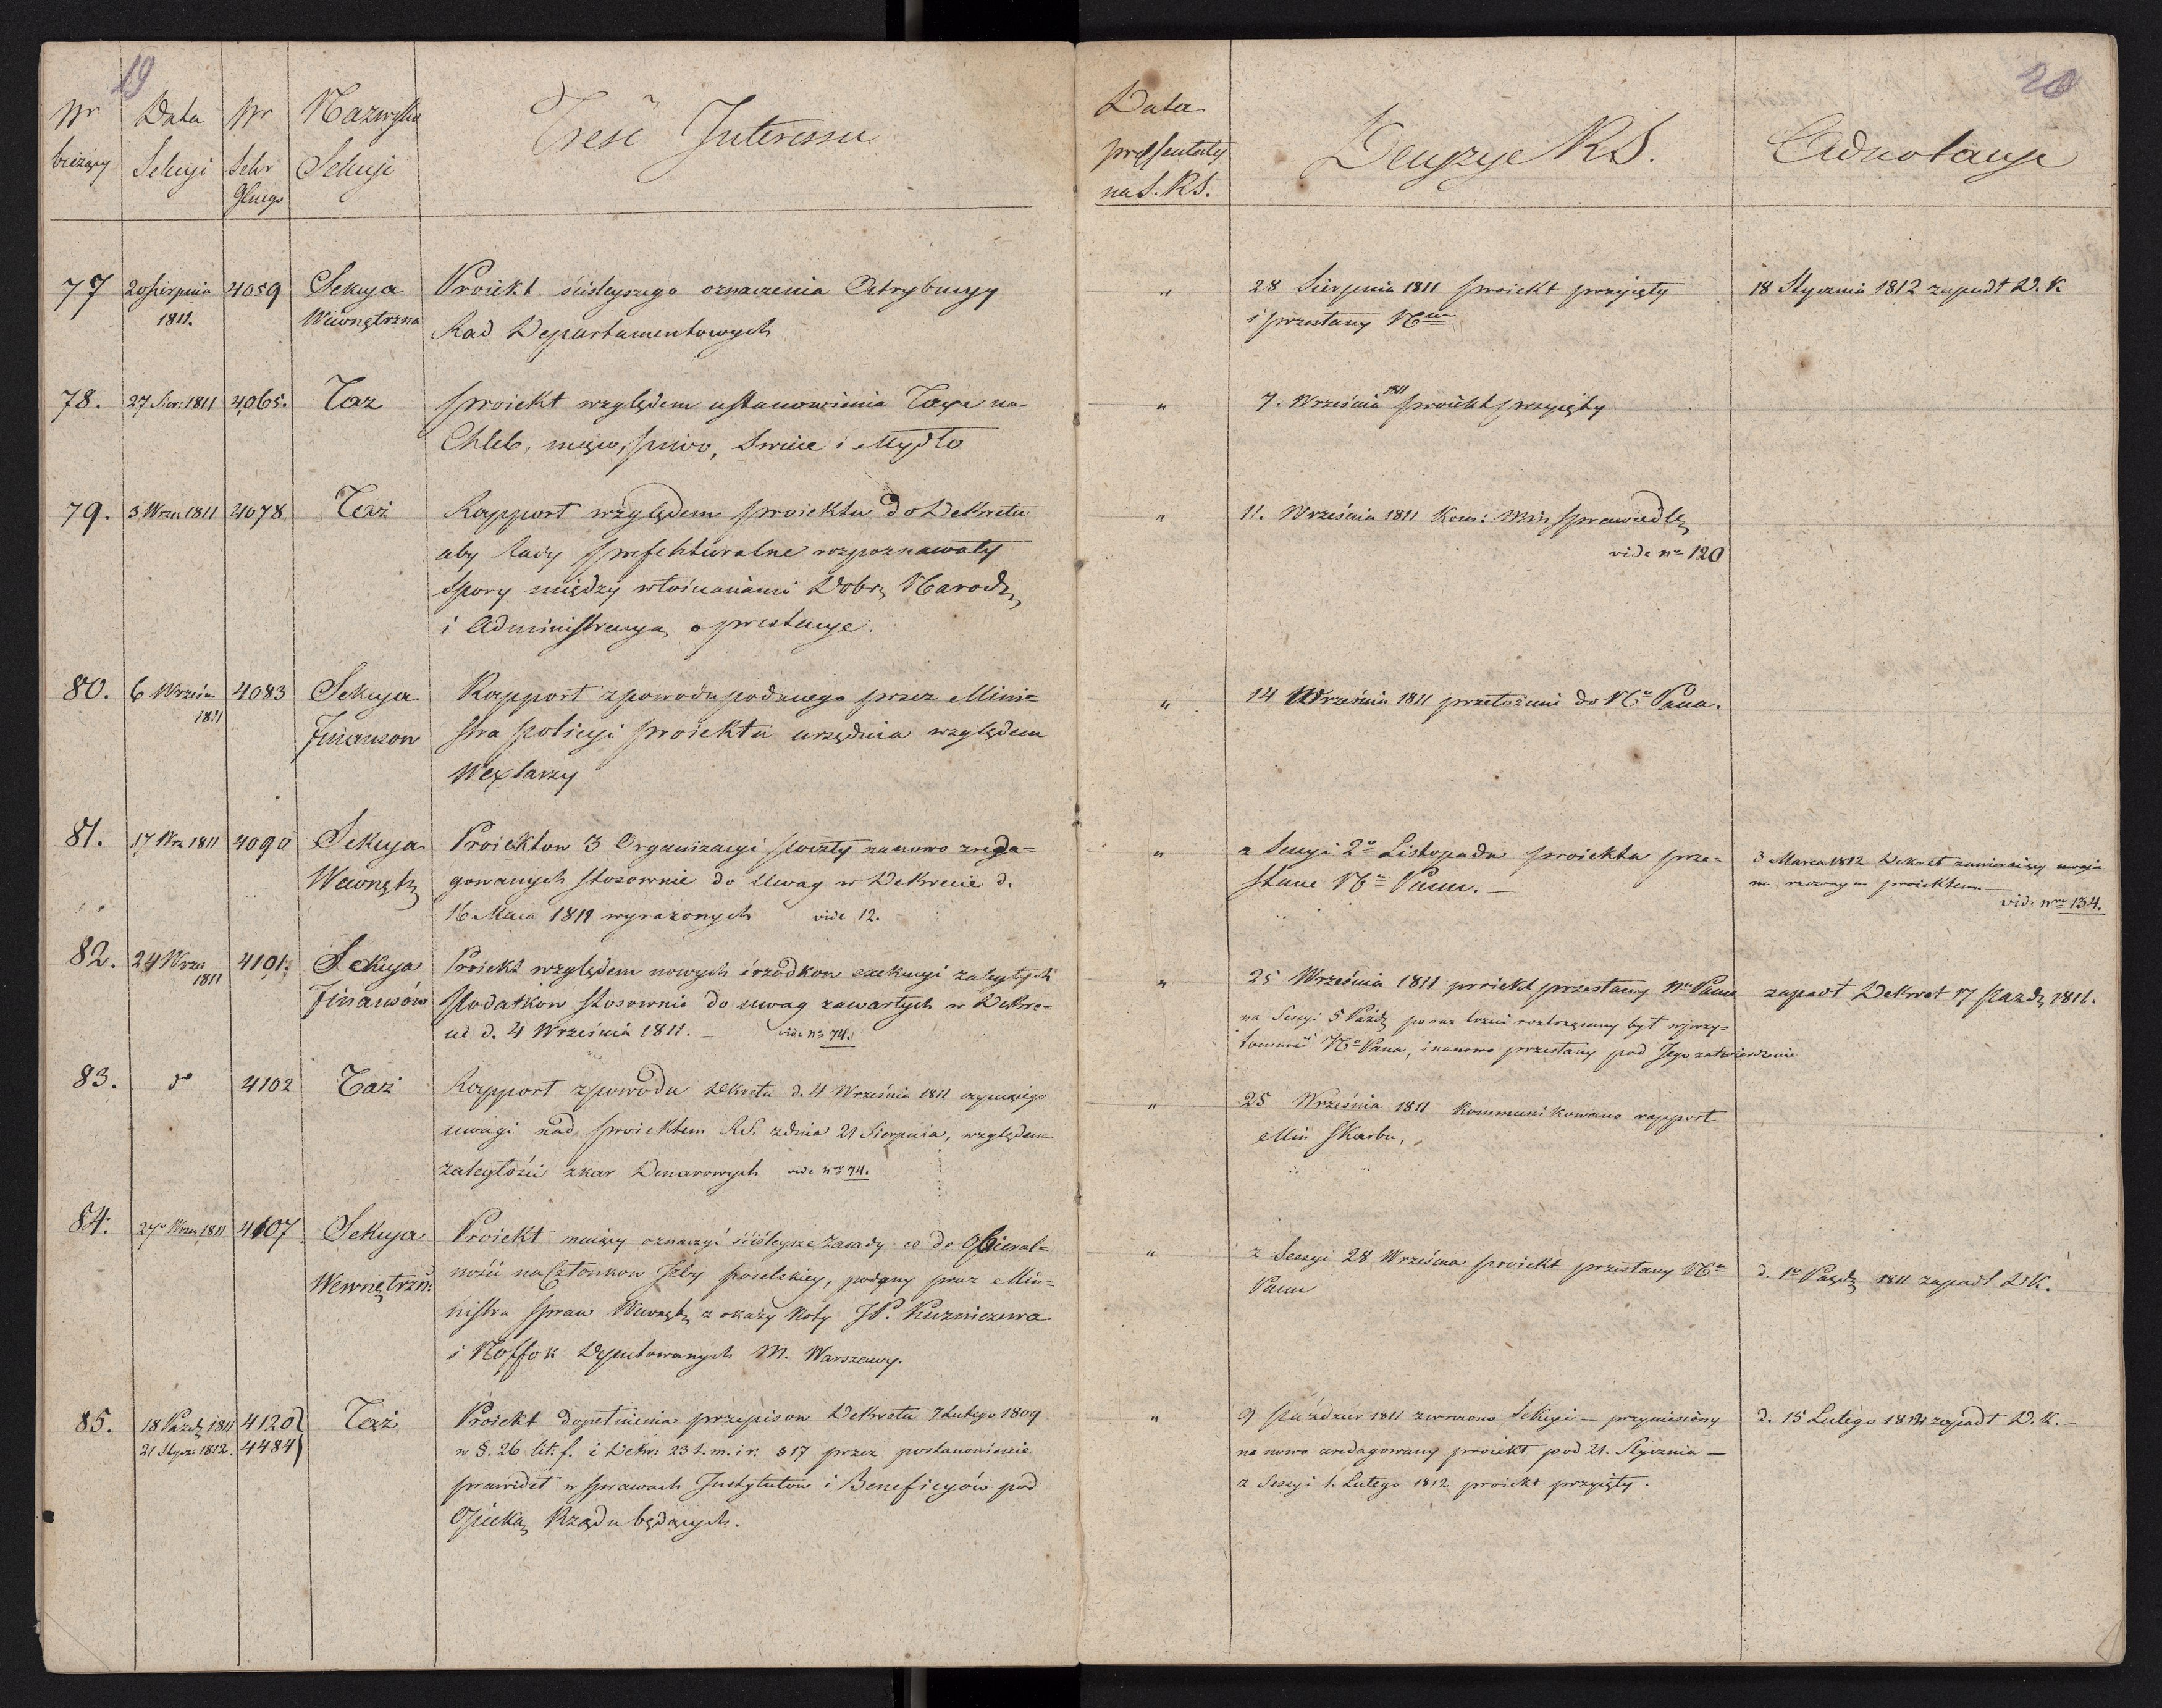 19
Nr bieżący
Data Sekcyi
Nr Sekr Głnego
Nazwisko Sekcyi
Treść Interessu
Data presentaty na S. RS.
Decyzye RS.
Adnotacye
20
77 20 Sierpnia 1811. 4059 Sekcya Wewnętrzna
Proiekt ściśleyszego oznaczenia Attrybucyy
Rad Departamentowych
"
28 Sierpnia 1811 proiekt przyięty
i przesłany NCmu
18 Stycznia 1812 zapadł D. K.
78. 27 Sier: 1811 4065. Taz
proiekt względem ustanowienia Taxe na
Chleb, mięso, piwo, Swiece i Mydło
"
7. Września 1811 proiekt przyięty
79. 3 Wrze 1811 4078. Taż
Rapport względem proiektu do Dekretu
aby Rady prefekturalne rozpoznawały
spory między włościanami Dobr Narod
i Administracyą o prestacye.
"
11. Września 1811 Kom: Min Sprawiedl
vide nr 120
80. 6 Wrześn 1811 4083 Sekcya Finansow
Rapport z powodu podanego przez Mini=
stra policyi proiektu urządzenia względem
Wexlarzy
"
14 Września 1811 przełożeni do NC Pana.
81. 17 Wrz 1811 4090 Sekcya Wewnętr
Proiektow 3 Organizacyi poczty na nowo zreda=
gowanych stosownie do Uwag w Dekrecie d.
16 Maia 1811 wyrażonych vide 12.
"
z Sessyi 2o Listopada proiekta prze=
słane NC Panu.—
3 Marca 1812 Dekret zawieraiący uwagi
nad rzeczonym proiektem —
vide nro 134.
82. 24 Wrze 1811 4101: Sekcya Finansów
Proiekt względem nowych środkow exekucyi zaległych
podatkow stosownie do uwag zawartych w Dekre=
cie d. 4 Września 1811. — vide nro 74.
"
25 Września 1811 proiekt przesłany NC Panu
na Sessyi 5 Paźdz po raz trzeci roztrząsany był w przy=
tomności NC Pana, i na nowo przesłany pod Jego zatwierdzenie
zapadł Dekret 17 Pazdz 1811.
83. do 4102 Taż
Rapport z powodu Dekretu d. 4 Września 1811 czyniącego
uwagi nad proiektem RS. z dnia 21 Sierpnia, względem
zaległości z kar Denarowych vide nro 74.
"
25 Września 1811 kommunikowano rapport
Min Skarbu.
84. 27o Wrze 1811 4107 Sekcya Wewnętrzn:
Proiekt maiący oznaczyć ściśleysze Zasady co do Obieral=
ności na Członkow Izby poselskiey, podany przez Min=
nistra Spraw Wewnętr z okazyi Noty JP. Kuzniczewa
i Noffok Deputowanych M. Warszawy.
"
z Sessyi 28 Września proiekt przesłany NC
Panu
d. 1o Pazdz 1811 zapadł D K.
85. 18 Pazdz 1811 4120
21 Stycz: 1812. 4484 Taż
Proiekt dopełnienia przepisow Dekretu 7 Lutego 1809
w §. 26 lit. f. i Dekr: 23 t. m. i r. § 17 przez postanowienie
prawideł w sprawach Instytutow i Beneficyów pod
Opieką Rządu będących.
"
9 paździer 1811 zwrocono Sekcyi — przyniesiony
na nowo zredagowany proiekt pod 21. Stycznia —
z Sessyi 1. Lutego 1812 proiekt przyięty.
d. 15 Lutego 1812 zapadł D. K.—